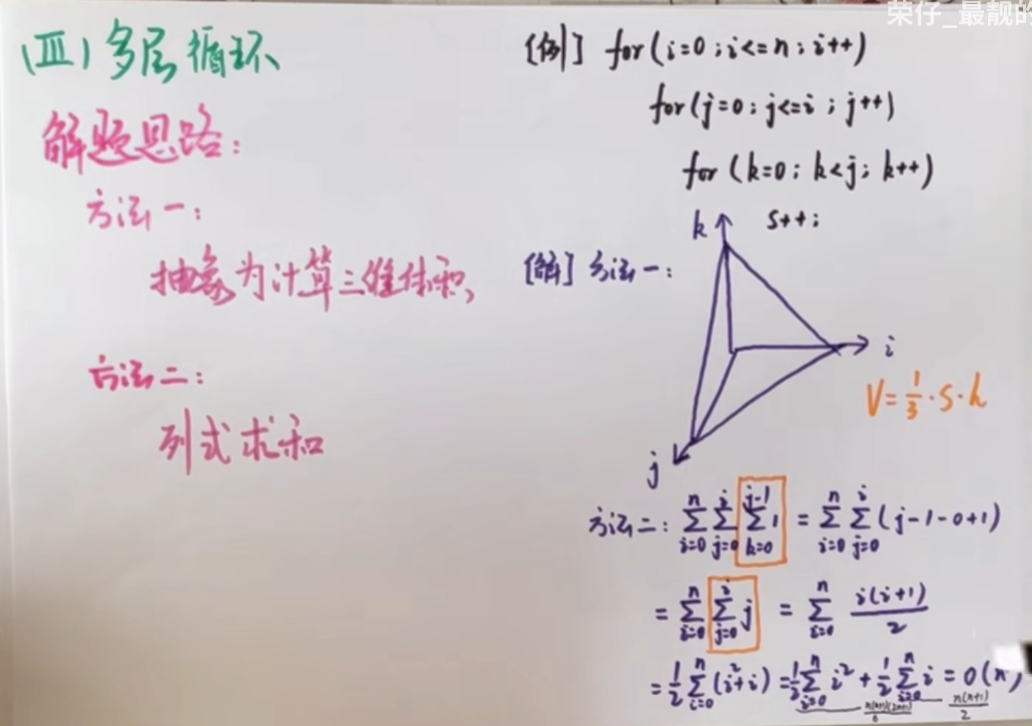 荣仔_最靓的
(三) 多层循环
解题思路:
方法一:
抽象为计算三维体积
方法二:
列式求和
[例] for(i=0;i<=n;i++)
for(j=0;j<=i;j++)
for(k=0;k<j;k++)
s++;
[解] 方法一:
k
i
j
V=1/3·s·h
方法二: ∑_{i=0}^{n} ∑_{j=0}^{i} ∑_{k=0}^{j-1} 1 = ∑_{i=0}^{n} ∑_{j=0}^{i} (j-1-0+1)
= ∑_{i=0}^{n} ∑_{j=0}^{i} j = ∑_{i=0}^{n} i(i+1)/2
= 1/2 ∑_{i=0}^{n} (i²+i) = 1/2 ∑_{i=0}^{n} i² + 1/2 ∑_{i=0}^{n} i = O(n
n(n+1)(2n+1)/6 n(n+1)/2